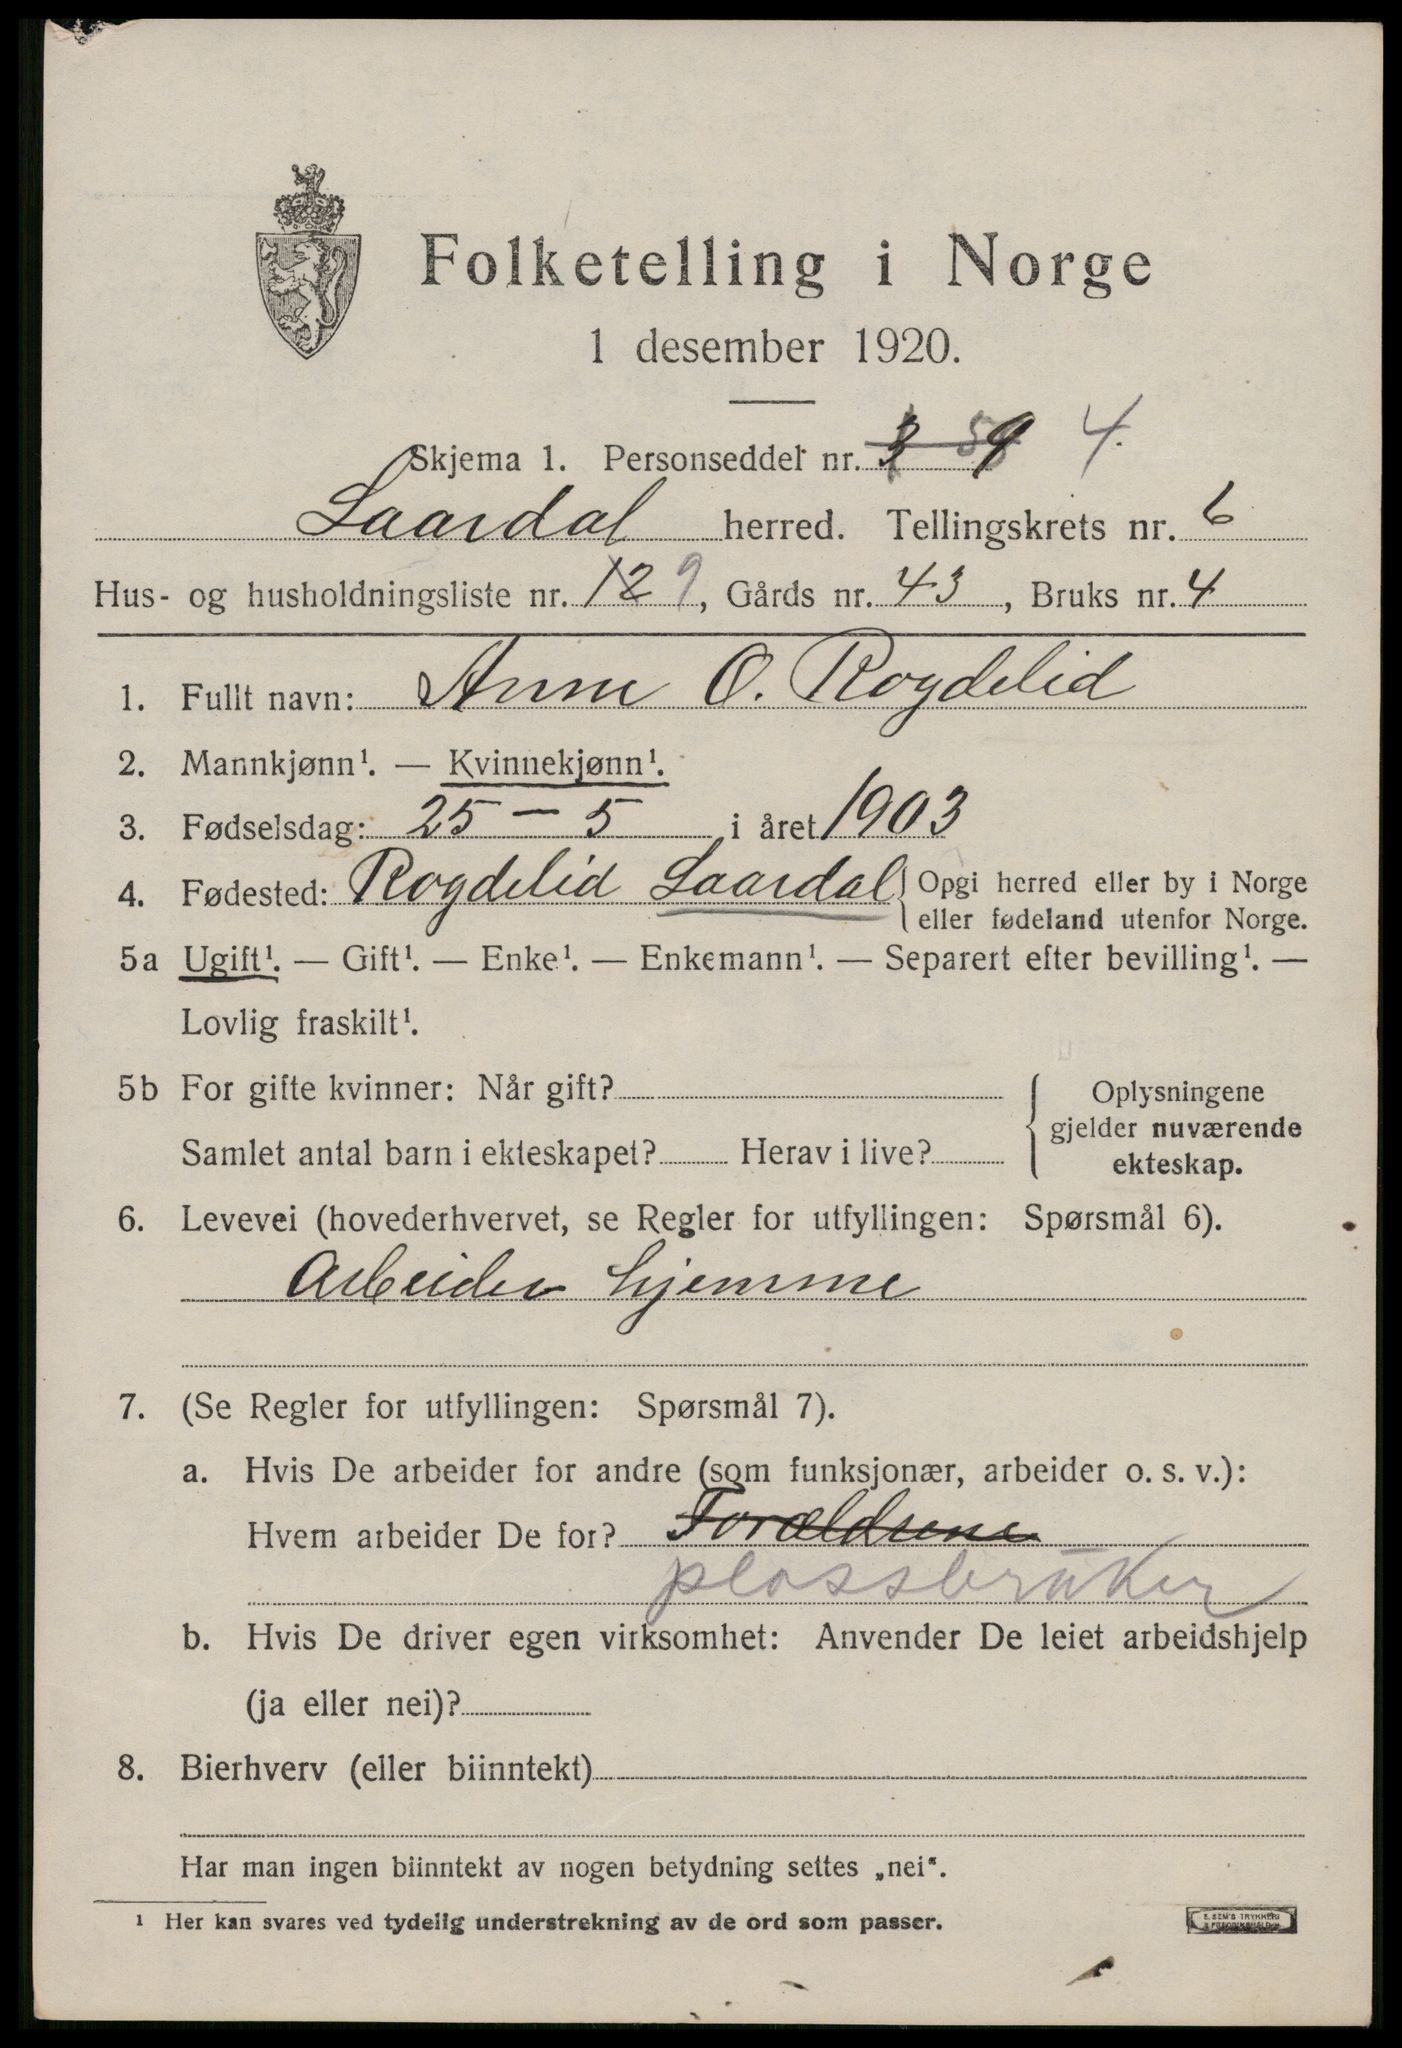 Folketelling i Norge
1 desember 1920.
Skjema 1. Personseddel nr. 3 9 4.
Laardal herred. Tellingskrets nr. 6
Hus- og husholdningsliste nr. 12 9, Gårds nr. 43, Bruks nr. 4
1. Fullt navn: Anne O. Rogdelid
2. Mannkjønn¹. — Kvinnekjønn¹.
3. Fødselsdag: 25 – 5 i året 1903
4. Fødested: Rogdelid Laardal { Opgi herred eller by i Norge
eller fødeland utenfor Norge.
5a Ugift¹. — Gift¹. — Enke¹. — Enkemann¹. — Separert efter bevilling¹. —
Lovlig fraskilt¹.
5b For gifte kvinner: Når gift?
Samlet antal barn i ekteskapet? Herav i live?
Oplysningene
gjelder nuværende
ekteskap.
6. Levevei (hovederhvervet, se Regler for utfyllingen: Spørsmål 6).
Arbeider hjemme
7. (Se Regler for utfyllingen: Spørsmål 7).
a. Hvis De arbeider for andre (som funksjonær, arbeider o. s. v.):
Hvem arbeider De for? Forældrene
plassbruker
b. Hvis De driver egen virksomhet: Anvender De leiet arbeidshjelp
(ja eller nei)?
8. Bierhverv (eller biinntekt)
Har man ingen biinntekt av nogen betydning settes „nei“.
¹ Her kan svares ved tydelig understrekning av de ord som passer.
E. SEM'S TRYKKERI